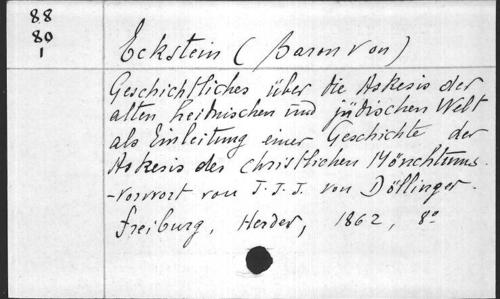 88
80
1
Eckstein (Baron von)
Geschichtliches über die Askesis der
alten heidnischen und jüdischen Welt
als Einleitung einer Geschichte der
Askesis des christlichen Mönchtums.
-Vorwort von J. J. J. von Döllinger.
Freiburg, Herder, 1862, 8°